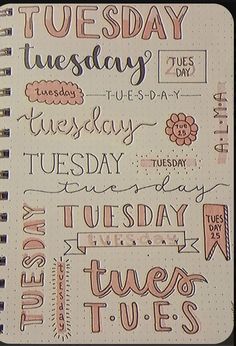 TUESDAY
tuesday
TUES
DAY
tuesday
T-U-E-S-D-A-Y
tuesday
TUE
25
A.L.M.A
TUESDAY
TUESDAY
tuesday
TUESDAY
TUESDAY
TUES
DAY
25
TUESDAY
TUESDAY
tues
T.U.E.S